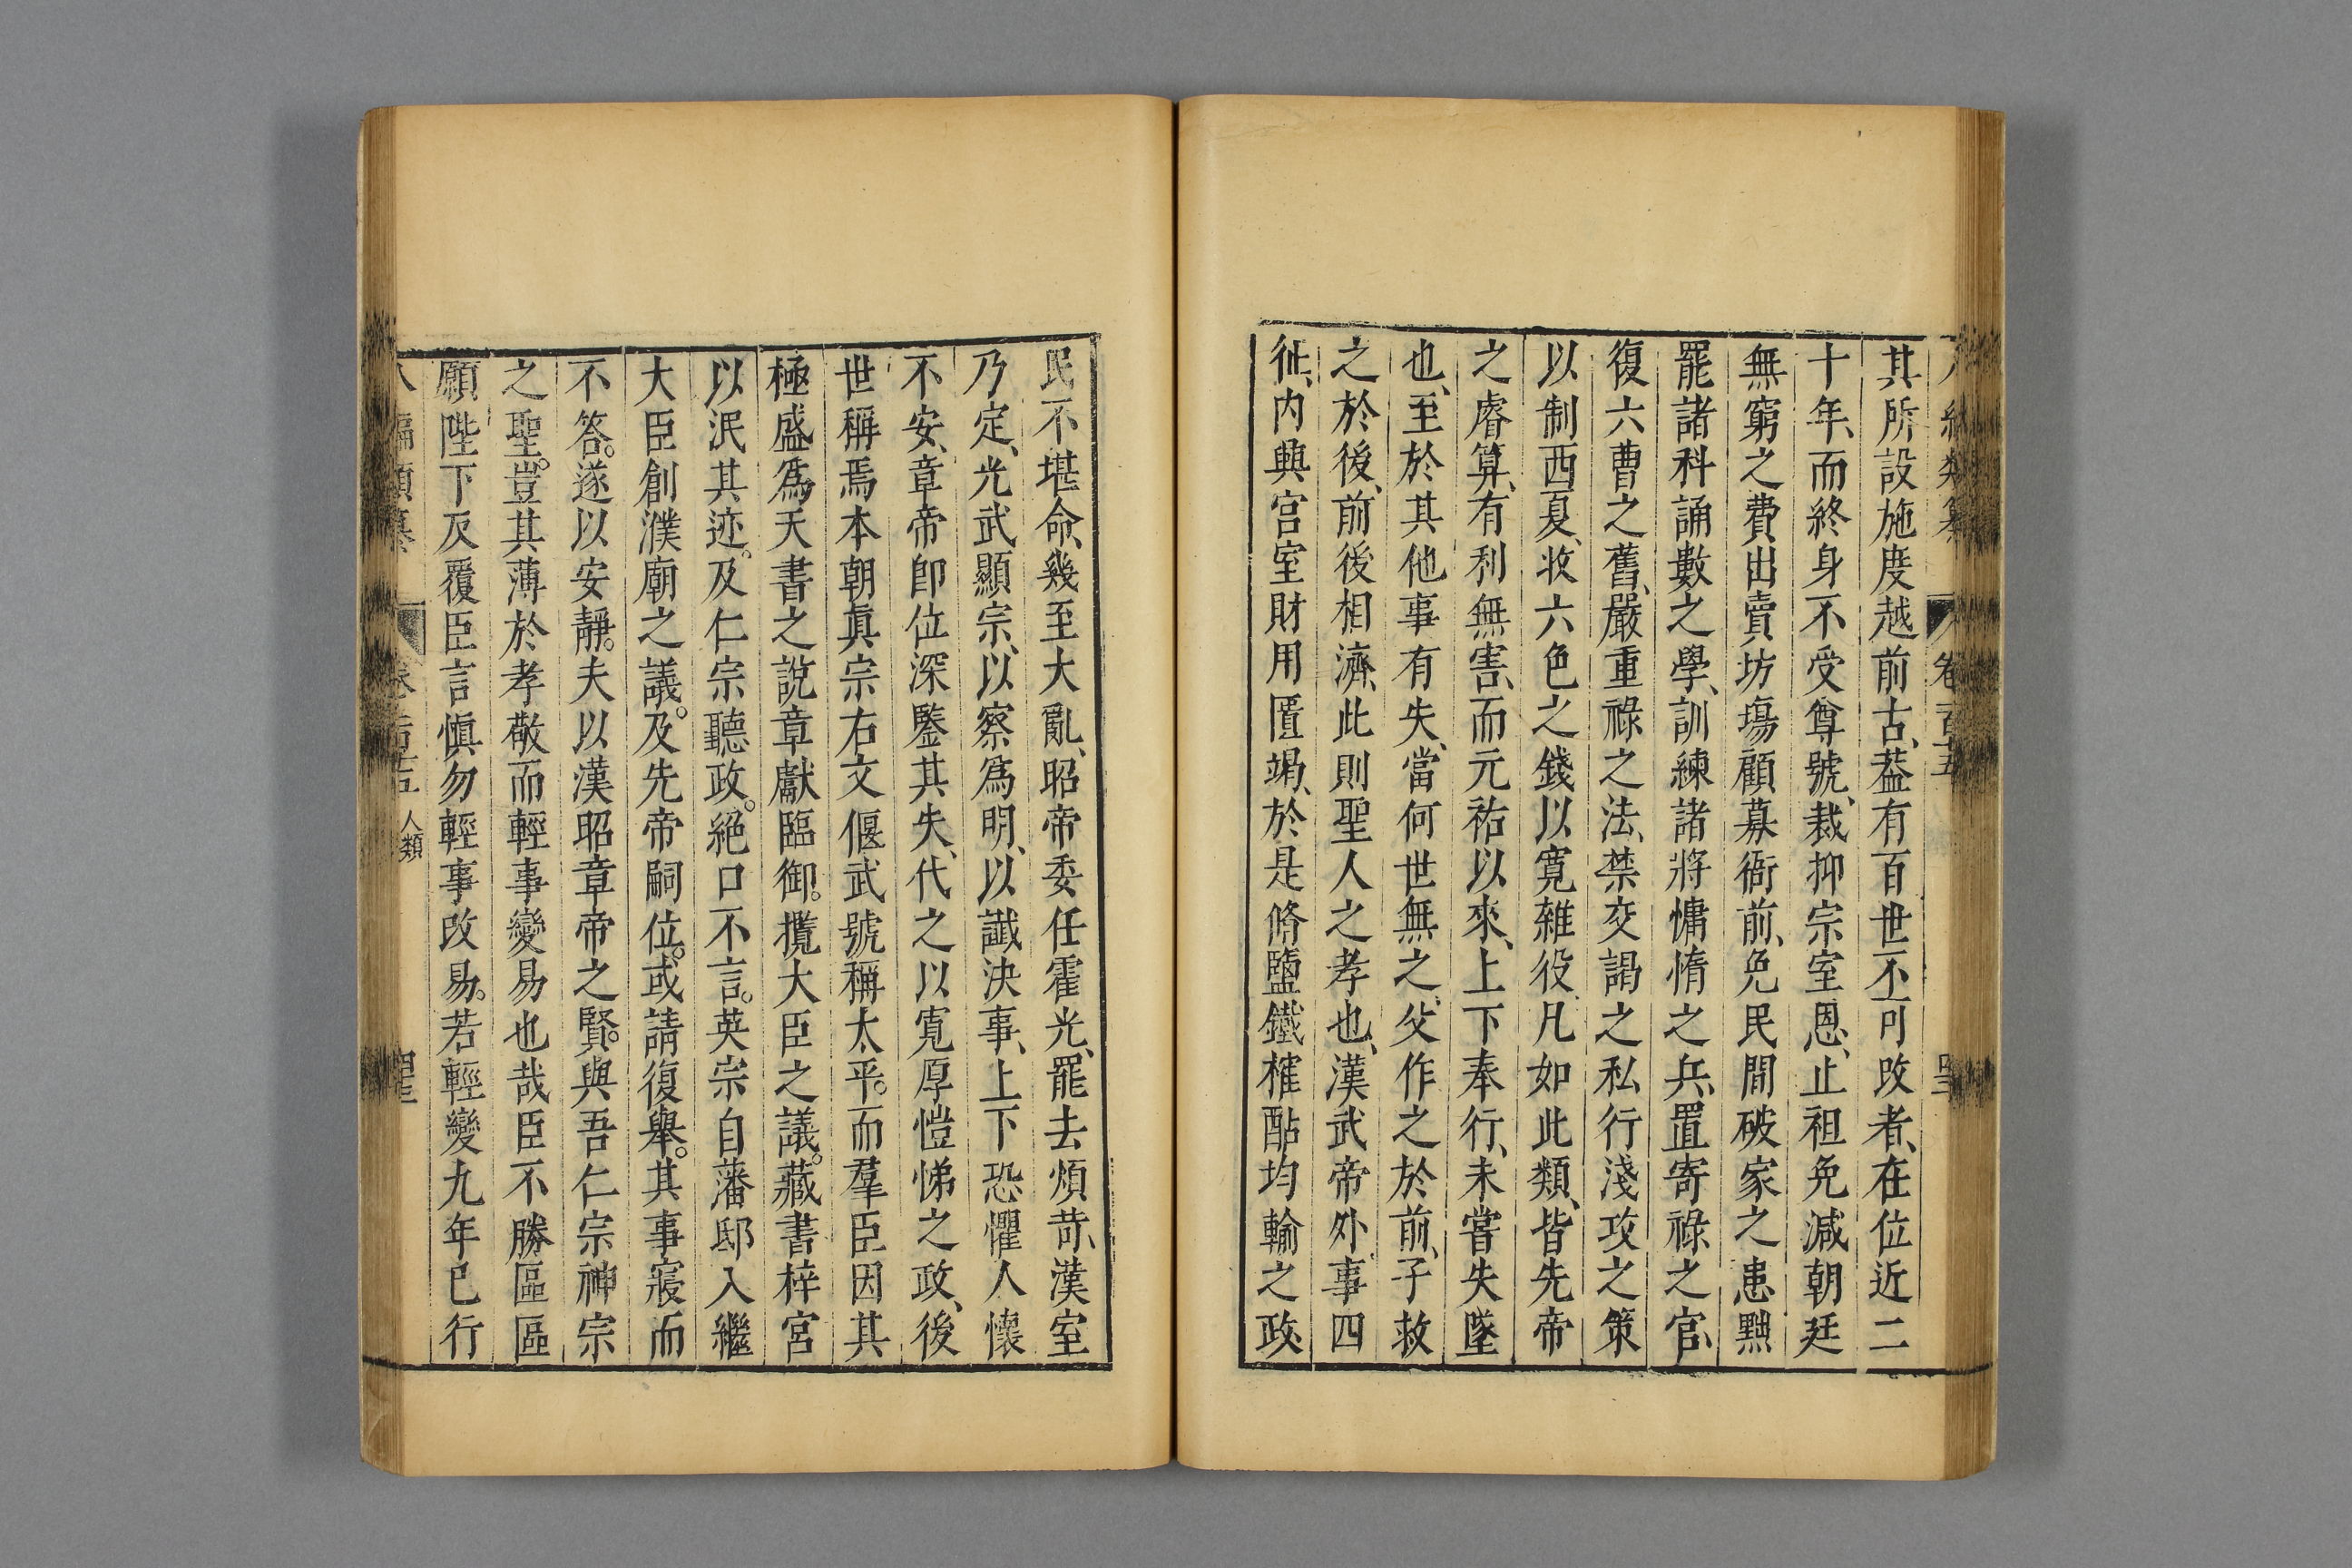 其所設施度越前古、葢有百世不可改者、在位近二
十年、而終身不受尊號、裁抑宗室恩、止袒免減朝廷
無窮之費出賣坊塲顧募衙前、免民間破家之患黜
罷諸科誦數之學、訓練諸將慵惰之兵、置寄祿之官、
復六曹之舊、嚴重祿之法、禁交謁之私行淺攻之策
以制西夏、收六色之錢以寬雜役、凡如此類、皆先帝
之睿算、有利無害、而元祐以來、上下奉行、未嘗失墜
也、至於其他事有失、當何世無之、父作之於前、子救
之於後、前後相濟、此則聖人之孝也、漢武帝外事四
征、内興宫室財用匱竭、於是脩鹽鐵榷酤均輸之政、
民不堪命、幾至大亂、昭帝委任霍光、罷去煩苛、漢室
乃定、光武顯宗、以察爲明、以讖決事、上下恐懼人懷
不安、章帝卽位深鑒其失、代之以寬厚愷悌之政、後
世稱焉本朝眞宗右文偃武號稱太平。而羣臣因其
極盛爲天書之說章獻臨御。攬大臣之議。藏書梓宮
以泯其迹。及仁宗聽政。絕口不言。英宗自藩邸入繼
大臣創濮廟之議。及先帝嗣位。或請復舉。其事寢而
不答。遂以安靜。夫以漢昭章帝之賢。與吾仁宗神宗
之聖。豈其薄於孝敬而輕事變易也哉臣不勝區區
願陛下反覆臣言愼勿輕事改易。若輕變九年已行
八編類纂 卷一百十五 人類